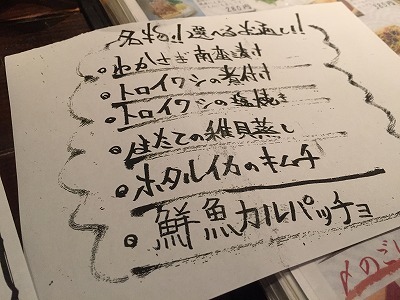 名物!選べるお通し!!
・わかさぎ南蛮漬け
・トロイワシの煮付け
・トロイワシの塩焼き
・生たての稚貝蒸し
・ホタルイカのキムチ
・鮮魚カルパッチョ
〆のごし